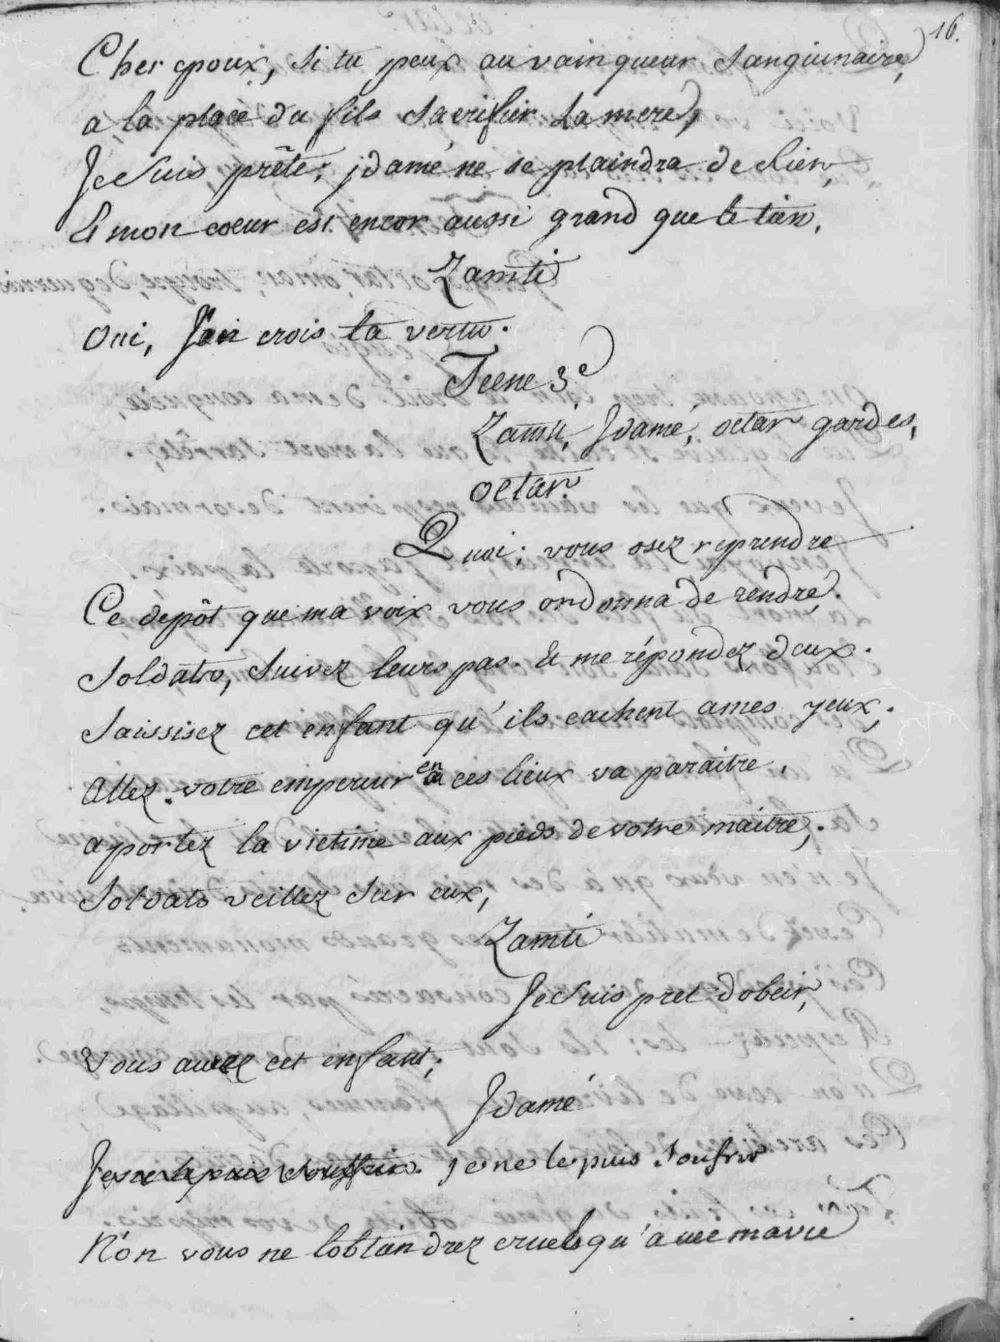 16.
Cher epoux, si tu peux au vainqueur sanguinaire,
a la place du fils sacrifier la mere,
Je suis prête; jdamé ne se plaindra de Rien,
Et mon coeur est encor aussi grand que le tien.
Zamti
Oui, j'en crois ta vertu.
Scene 3e
Zamti, Jdamé, octar gardes,
octar.
Quoi; vous osez reprendre
Ce depôt que ma voix vous ordonna de rendre.
Soldats, suivez leurs pas. Et me répondez deux.
Saissisez cet enfant qu'ils cachent a mes yeux;
Allez. votre empereur en ces lieux va paraitre.
aportez la victime aux pieds de votre maitre,.
Soldats veillez sur eux,
Zamti
Je suis pret d'obeir,
Vous aurez cet enfant;
Jdamé
je ne le puis soufrir
Non vous ne l'obtiendrez cruels qu'avec ma vie